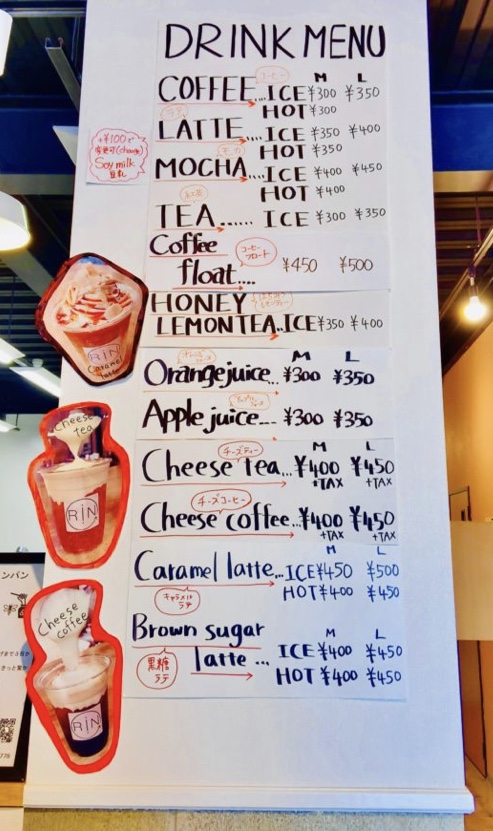 DRINK MENU
M L
コーヒー
COFFEE...ICE ¥300 ¥350
HOT ¥300
ラテ
LATTE....ICE ¥350 ¥400
HOT ¥350
モカ
MOCHA....ICE ¥400 ¥450
HOT ¥400
+¥100で
変更可(change)
Soy milk
豆乳
紅茶
TEA...... ICE ¥300 ¥350
Coffee
float....
コーヒー
フロート
¥450 ¥500
HONEY
LEMONTEA..ICE ¥350 ¥400
M L
オレンジ
ジュース
Orange juice... ¥300 ¥350
アップル
ジュース
Apple juice.... ¥300 ¥350
M L
チーズティー
Cheese tea...¥400 ¥450
+TAX +TAX
チーズコーヒー
Cheese coffee...¥400 ¥450
+TAX +TAX
M L
Caramel latte...ICE ¥450 ¥500
HOT ¥400 ¥450
キャラメル
ラテ
Brown sugar
latte ...
黒糖
ラテ
M L
ICE ¥400 ¥450
HOT ¥400 ¥450
RIN
Caramel
latte
Cheese
tea
RIN
Cheese
coffee
RIN
ンパン